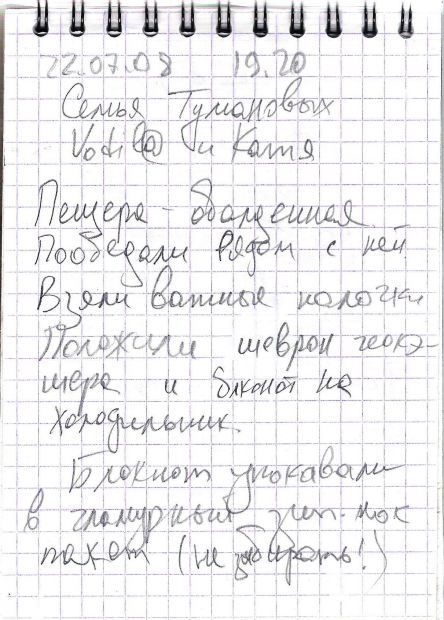 22.07.08 19.20
Семья Тумановых
Vodil@ и Катя
Пещера - обалденная
Пообедали рядом с ней
Взяли ватные палочки
Положили шеврон геокэ-
шера и блконот на
холодильник.
Блокнот упокавали
в гламурный зип-лок
пакет (не забирать!)